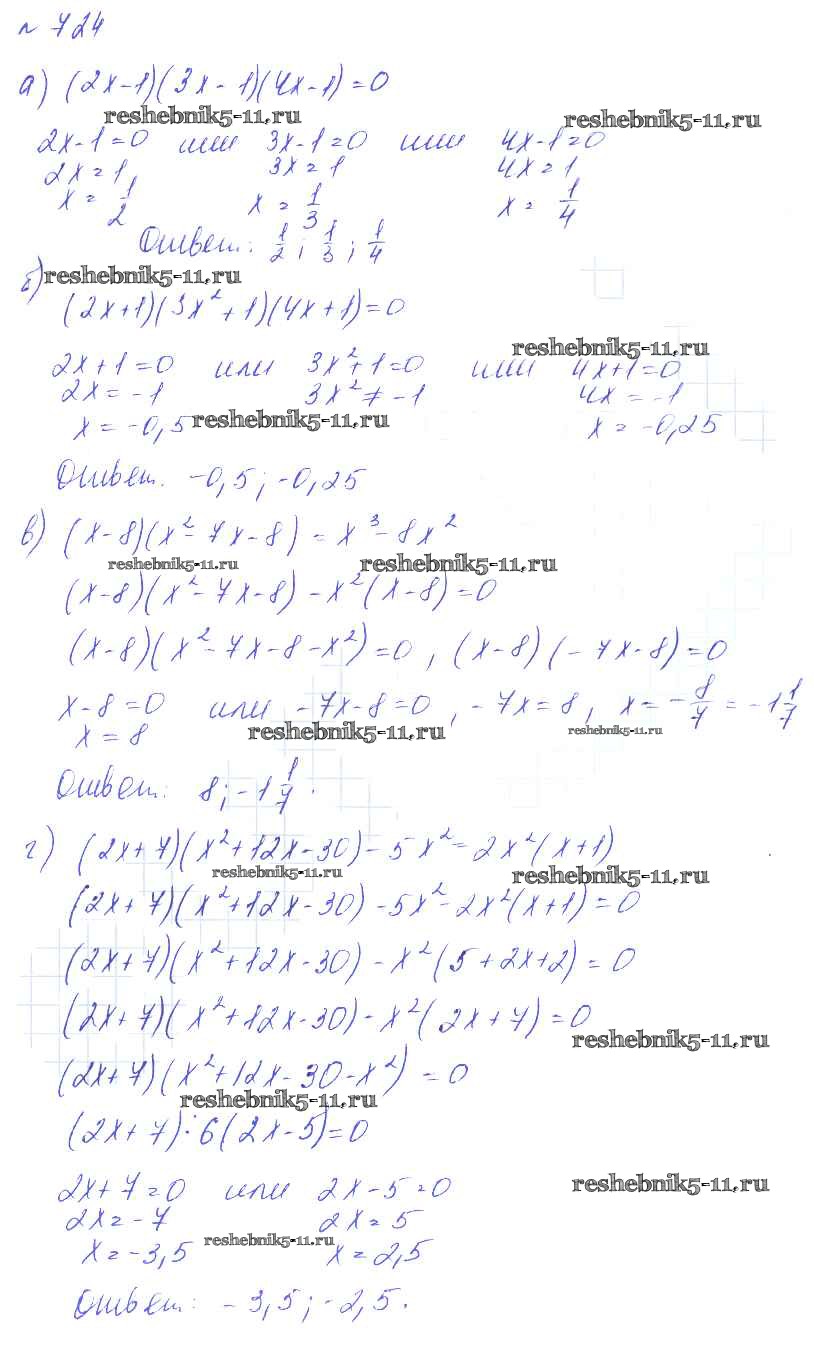 № 724
а) (2x-1)(3x-1)(4x-1)=0
reshebnik5-11.ru reshebnik5-11.ru
2x-1=0 или 3x-1=0 или 4x-1=0
2x=1, 3x=1 4x=1
x = 1/2 x = 1/3 x = 1/4
Ответ: 1/2; 1/3; 1/4
б) reshebnik5-11.ru
(2x+1)(3x²+1)(4x+1)=0
reshebnik5-11.ru
2x+1=0 или 3x²+1=0 или 4x+1=0
2x=-1 3x²≠-1 4x=-1
x=-0,5 reshebnik5-11.ru x=-0,25
Ответ. -0,5; -0,25
в) (x-8)(x²-7x-8) = x³-8x²
reshebnik5-11.ru reshebnik5-11.ru
(x-8)(x²-7x-8)-x²(x-8)=0
(x-8)(x²-7x-8-x²)=0, (x-8)(-7x-8)=0
x-8=0 или -7x-8=0, -7x=8, x=-8/7=-1 1/7
x=8 reshebnik5-11.ru reshebnik5-11.ru
Ответ: 8; -1 1/7.
г) (2x+7)(x²+12x-30)-5x²=2x²(x+1)
reshebnik5-11.ru reshebnik5-11.ru
(2x+7)(x²+12x-30)-5x²-2x²(x+1)=0
(2x+7)(x²+12x-30)-x²(5+2x+2)=0
(2x+7)(x²+12x-30)-x²(2x+7)=0
reshebnik5-11.ru
(2x+7)(x²+12x-30-x²)=0
reshebnik5-11.ru
(2x+7)·6(2x-5)=0
2x+7=0 или 2x-5=0 reshebnik5-11.ru
2x=-7 2x=5
x=-3,5 reshebnik5-11.ru x=2,5
Ответ: -3,5; -2,5.